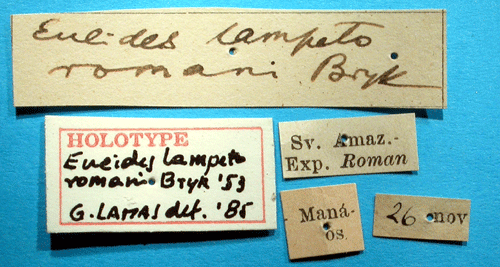 Eueides lampeto
romani Bryk
HOLOTYPE
Eueides lampeto
romani Bryk '53
G. LAMAS det. '85
Sv. Amaz.-
Exp. Roman
Maná-
os.
26 nov